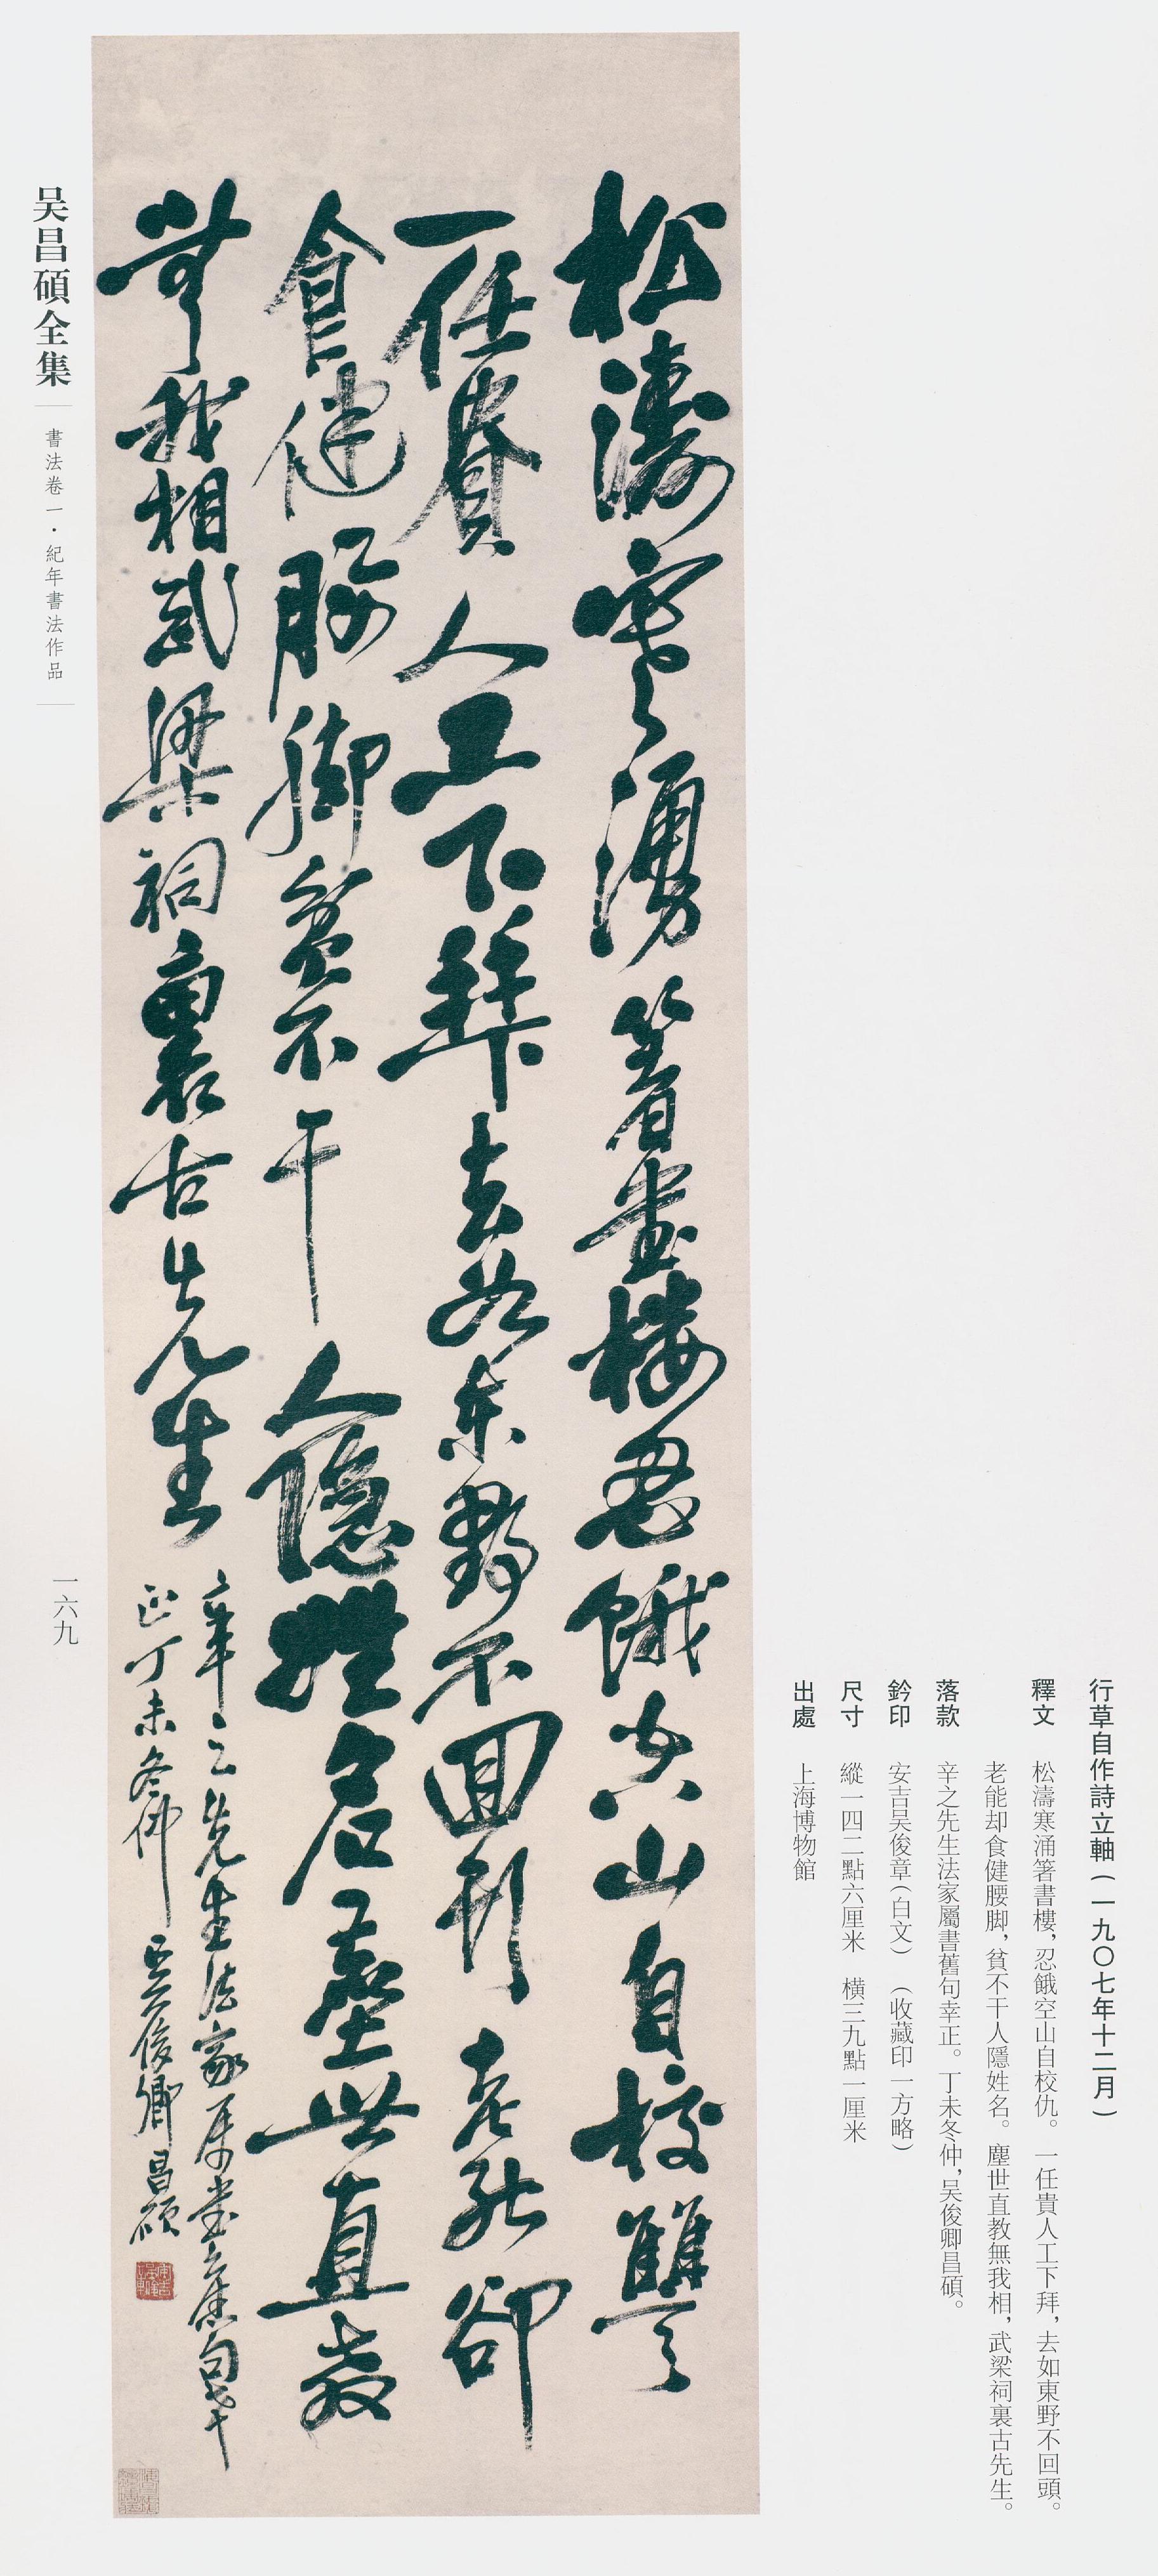 行草自作詩立軸(一九〇七年十二月)
釋文 松濤寒涌箸書樓,忍餓空山自校仇。一任貴人工下拜,去如東野不回頭。
老能却食健腰脚,貧不干人隱姓名。塵世直教無我相,武梁祠裏古先生。
落款 辛之先生法家屬書舊句幸正。丁未冬仲,吴俊卿昌碩。
鈐印 安吉吴俊章(白文) (收藏印一方略)
尺寸 縱一四二點六厘米 橫三九點一厘米
出處 上海博物館
松濤寒湧箸書樓忍餓空山自校讎
一任貴人工下拜去如東野不回頭老能卻
食健腰脚貧不干人隱姓名塵世直教
無我相武梁祠裏古先生
辛之先生法家属書舊句幸
正丁未冬仲吴俊卿昌碩
安吉吴俊章
吴昌碩全集
書法卷一·紀年書法作品
一六九